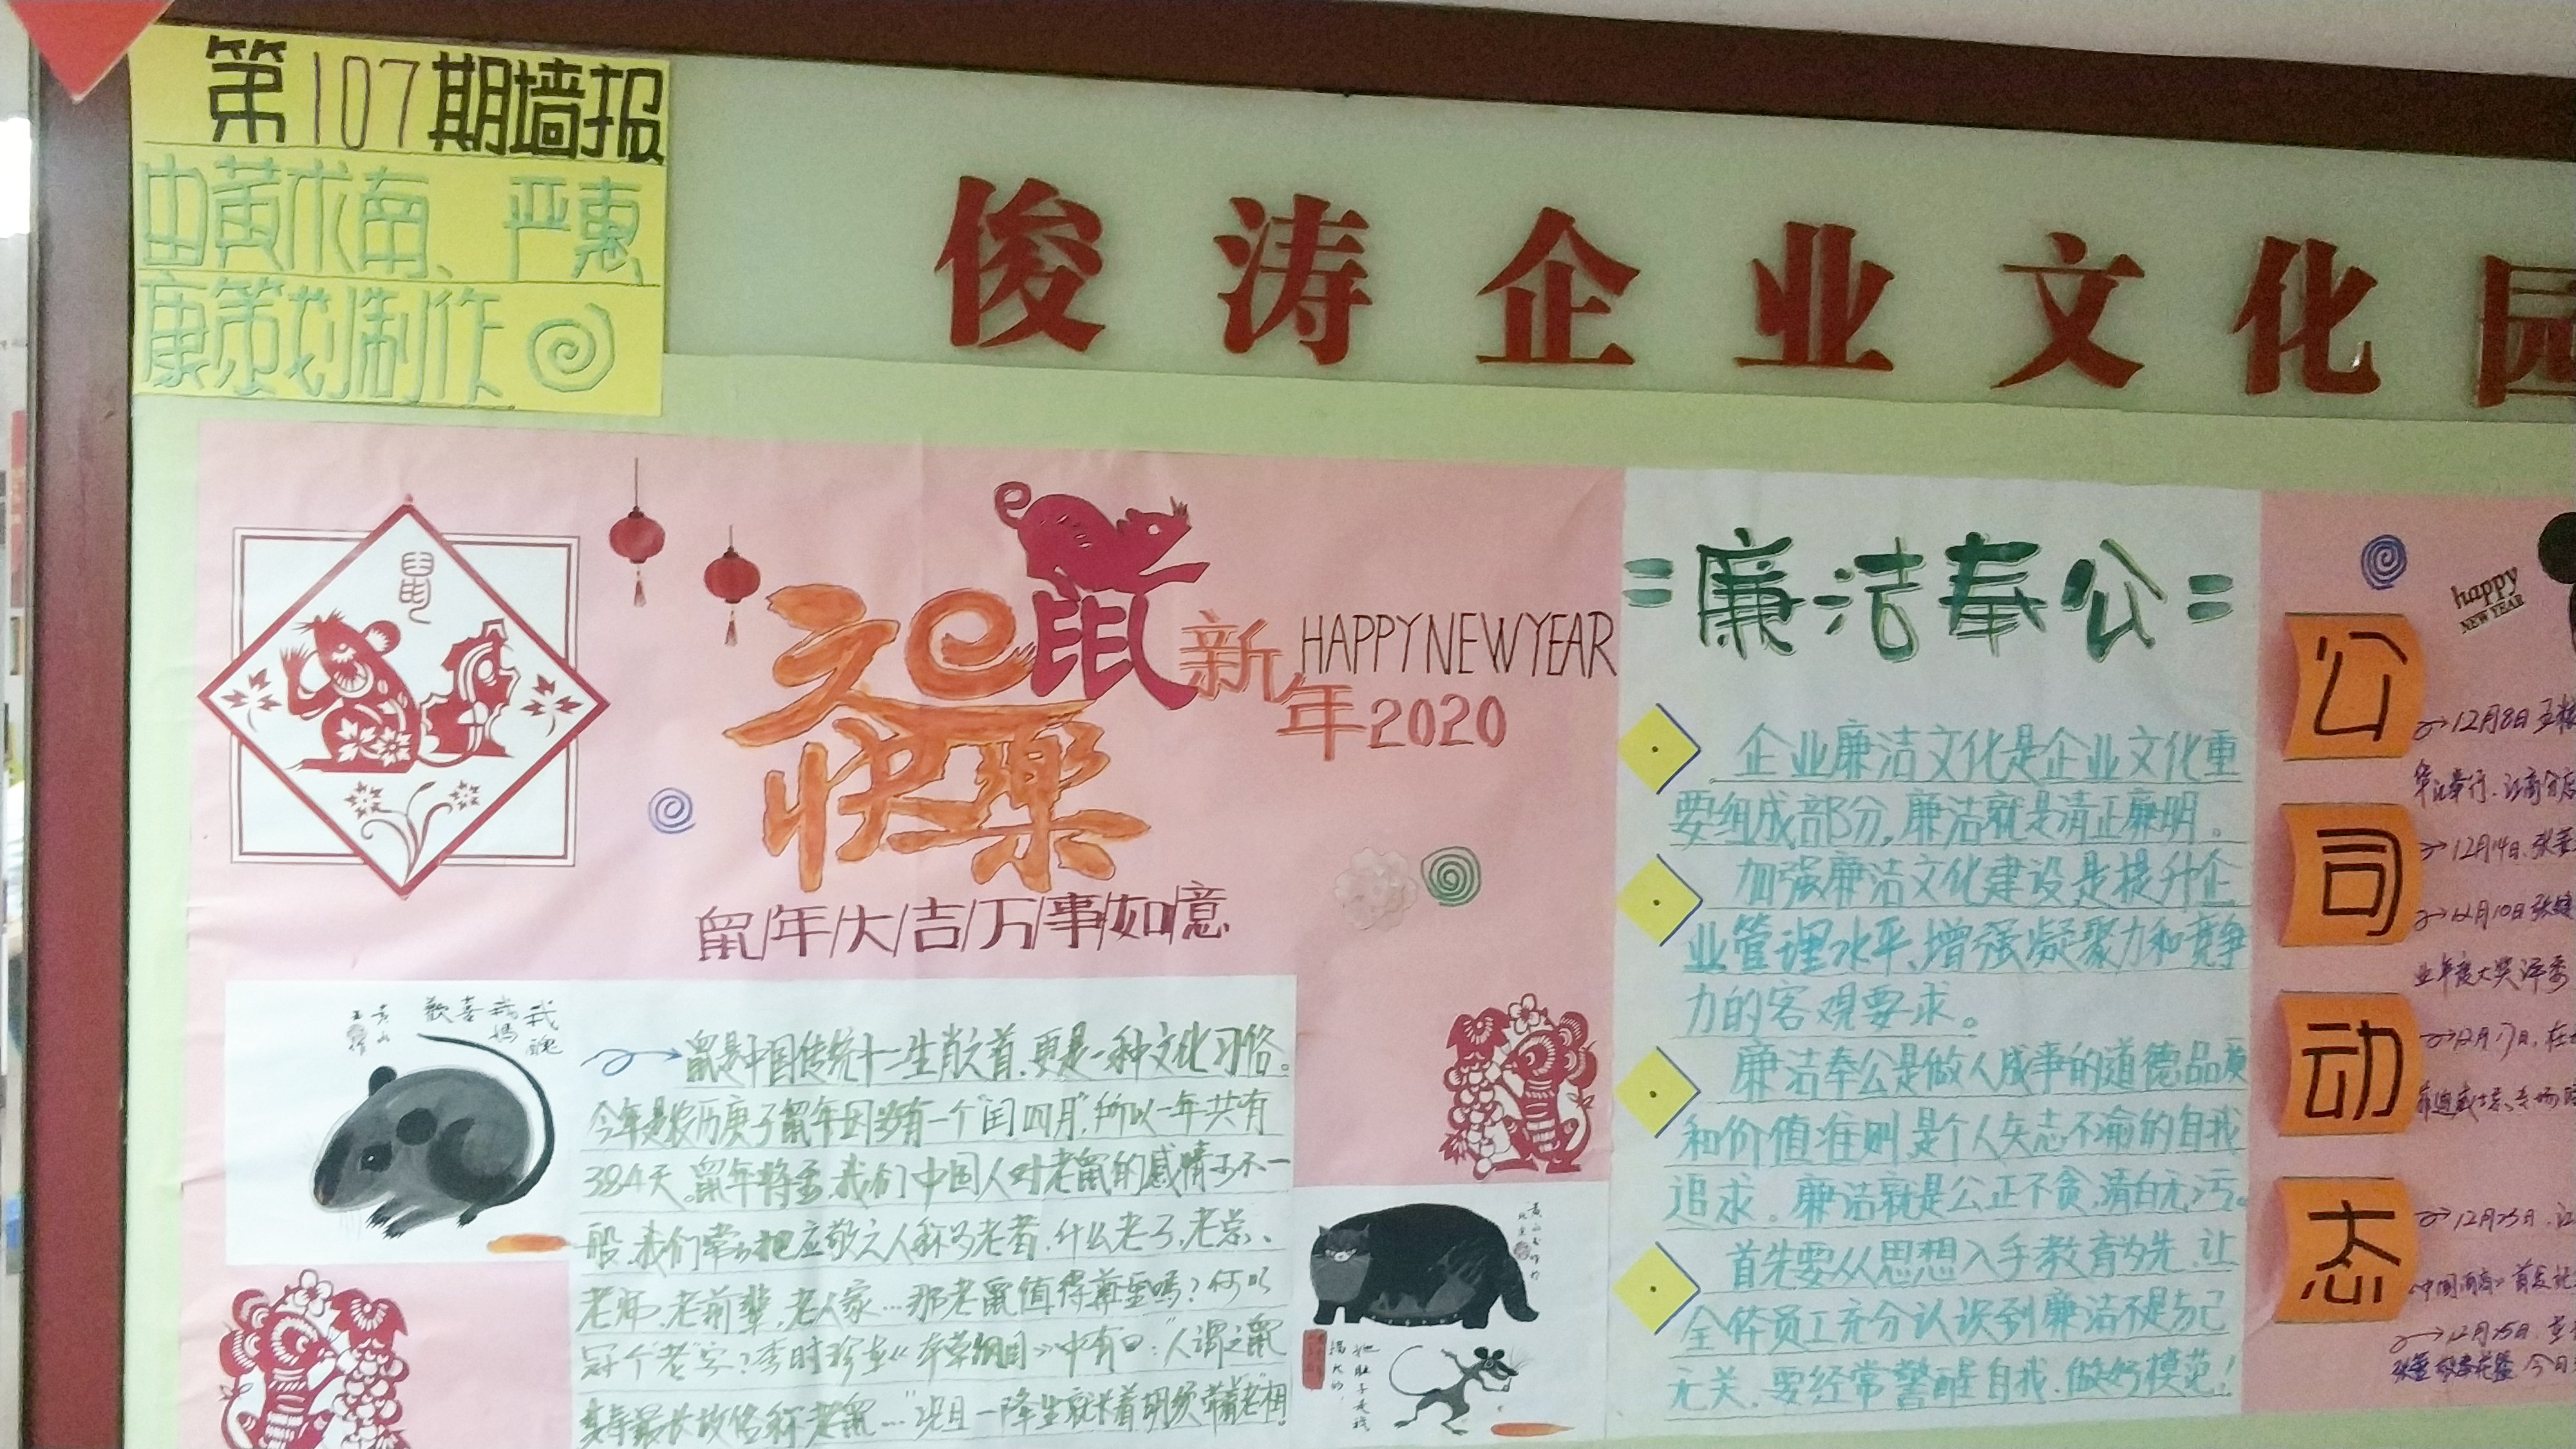 第107期墙报
由黄术南、严惠
康策划制作
俊涛企业文化园
鼠
鼠新年2020
HAPPY NEW YEAR
快樂
鼠/年/大/吉/万/事/如/意
鼠是中国传统十二生肖之首,更是一种文化习俗。
今年是农历庚子鼠年因为有一个"闰四月",所以一年共有
384天。鼠年将至,我们中国人对老鼠的感情可不一
般,我们常常把应敬之人称为老者,什么老子,老总、
老师,老前辈,老人家…那老鼠值得尊重吗?何以
冠个"老"字?李时珍在《本草纲目》中有曰:"人谓之鼠
其寿最长故俗称老鼠…"况且一降生就长着胡须带着老相。
=廉洁奉公=
企业廉洁文化是企业文化重
要组成部分,廉洁就是清正廉明。
加强廉洁文化建设是提升企
业管理水平、增强凝聚力和竞争
力的客观要求。
廉洁奉公是做人成事的道德品质
和价值准则是个人矢志不渝的自我
追求。廉洁就是公正不贪,清白无污。
首先要从思想入手教育为先,让
全体员工充分认识到廉洁不是与己
无关,要经常警醒自我,做好模范!
happy
NEW YEAR
公司动态
12月8日
12月14日,张
12月10日张
业年度大奖评委
12月17日,在
12月23日,
《中国商商》首发
12月25日,
今日